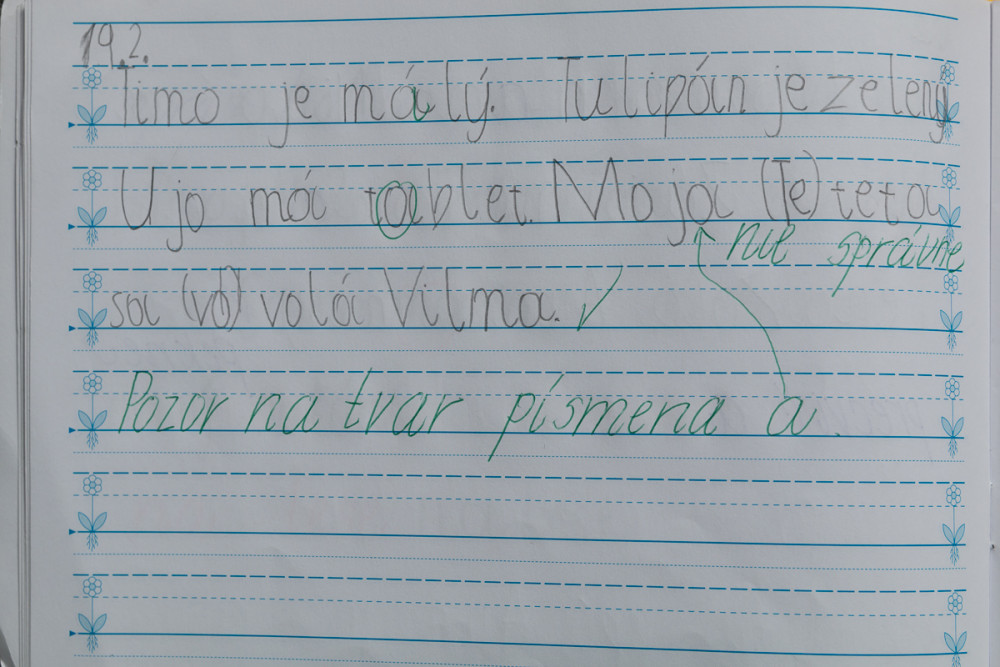 19.2.
Timo je málý. Tulipán je zelený
Ujo má tablet. Moja (Te) teta
nie správne
sa (vo) volá Vilma. ✓
Pozor na tvar písmena a.